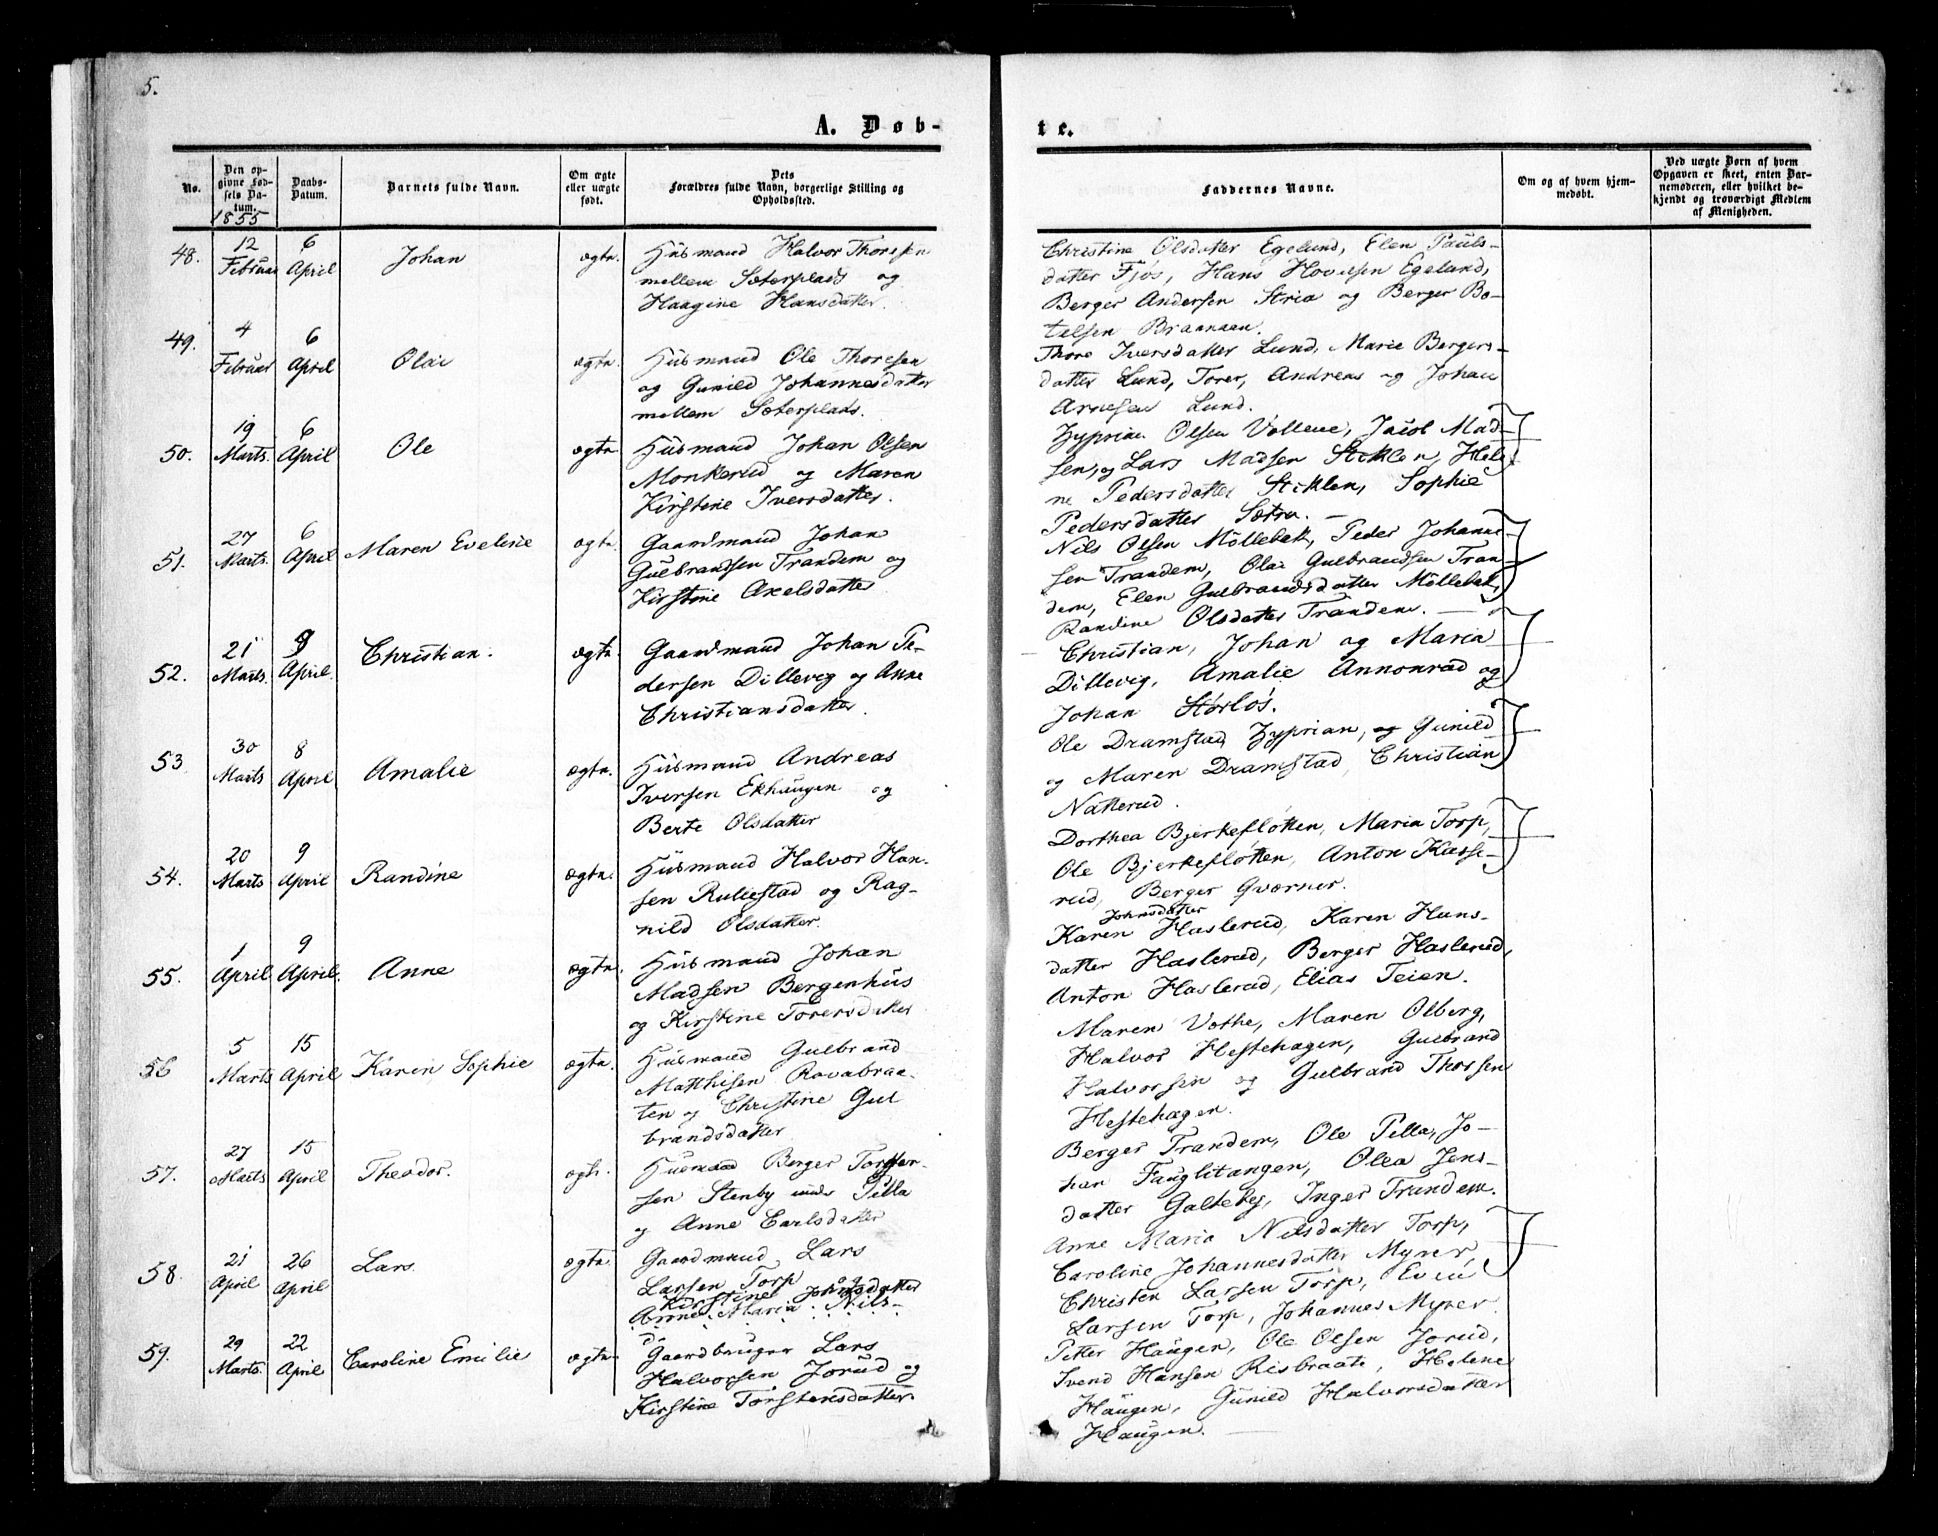 5.
A. Døb-
te.
No.
Den op-
givne Fød-
sels Da-
tum.
1855
Daabs-
Datum.
Barnets fulde Navn.
Om ægte
eller uægte
født.
Dets
Forældres fulde Navn, borgerlige Stilling og
Opholdssted.
Faddernes Navne.
Om og af hvem hjem-
medøbt.
Ved uægte Børn af hvem
Opgaven er skeet, enten Bar-
nemoderen, eller hvilket be-
kjendt og troværdigt Medlem
af Menigheden.
48.
12
Februar
6
April
Johan
ægte.
Husmand Halvor Thoresen
mellem Sæterplads og
Haagine Hansdatter.
Christine Olsdatter Egelund, Elen Pauls-
datter Fjøs, Hans Hovelsen Egelund,
Berger Andersen Stria og Berger Bo-
telsen Braanaan.
49.
4
Februar
6
April
Olai
ægte.
Husmand Ole Thoresen
og Gunild Johannesdatter
mellem Sæterplads.
Thore Iversdatter Lund, Marie Bergers-
datter Lund, Torer, Andreas og Johan
Arnesen Lund.
50.
19
Marts.
6
April
Ole
ægte
Husmand Johan Olsen
Monkerud og Maren
Kirstine Iversdatter.
Zyprian Olsen Vollene, Jacob Mad-
sen, og Lars Madsen Stiklen, Hele-
ne Pedersdatter Stiklen, Sophie
Pedersdatter Sætra. —
51.
27
Marts.
6
April
Maren Eveline
ægte
Gaardmand Johan
Gulbrandsen Trandem og
Kirstine Axelsdatter
Nils Olsen Möllebek, Peder Johanne-
sen Trandem, Olai Gulbrandsen Tran-
dem, Elen Gulbrandsdatter Möllebek,
Randine Olsdatter Trandem. —
52.
21
Marts.
9
April.
Christian.
ægte.
Gaardmand Johan Pe-
dersen Dillevig og Anne
Christiansdatter.
Christian, Johan og Maria
Dillevig, Amalie Annonrud og
Johan Störlös.
53
30
Marts
8
April
Amalie
ægte.
Husmand Andreas
Iversen Ekhaugen og
Berte Olsdatter
Ole Dramstad, Zyprian, og Gunild
og Maren Dramstad, Christian
Natterud.
54.
20
Marts
9
April
Randine
ægte.
Husmand Halvor Han-
sen Rullestad og Rag-
nild Olsdatter.
Dorthea Bjerkefløtten, Maria Torp,
Ole Bjerkefløtten, Anton Kasse-
rud, Berger Qværner.
55.
1
April
9
April.
Anne
ægte.
Husmand Johan
Madsen Bergenhus
og Kirstine Torersdatter
Johnsdatter
Karen Haslerud, Karen Hans-
datter Haslerud, Berger Haslerud,
Anton Haslerud, Elias Teien.
56
5
Marts
15
April
Karen Sophie
ægte.
Husmand Gulbrand
Matthisen Ravabraa-
ten og Christine Gul
brandsdatter
Maren Vothe, Maren Olberg,
Halvor Hestehagen, Gulbrand
Halvorsen og Gulbrand Thoresen
Hestehagen.
57.
27
Marts
15
April
Theodor.
ægte.
Husmand Berger Torsten-
sen Stenby under Pilla
og Anne Carlsdatter
Berger Trandem, Ole Pilla, Jo-
han Fauglitangen, Olea Jens-
datter Galteby, Inger Trandem.
58.
21
April
26
April
Lars.
ægte.
Gaardmand Lars
Larsen Torp og
Kirstine Johnsdatter
Anne Maria Nils-
Anne Maria Nilsdatter Torp,
Caroline Johannesdatter Myrer,
Christen Larsen Torp, Even
Larsen Torp, Johannes Myrer.
59.
29
Marts.
22
April
Caroline Emilie
ægte
Gaardbruger Lars
Halvorsen Jorud og
Kirstine Torstensdatter
Petter Haugen, Ole Olsen Jorud,
Svend Hansen Risbraate, Helene
Haugen, Gunild Halvorsdatter
Haugen. —